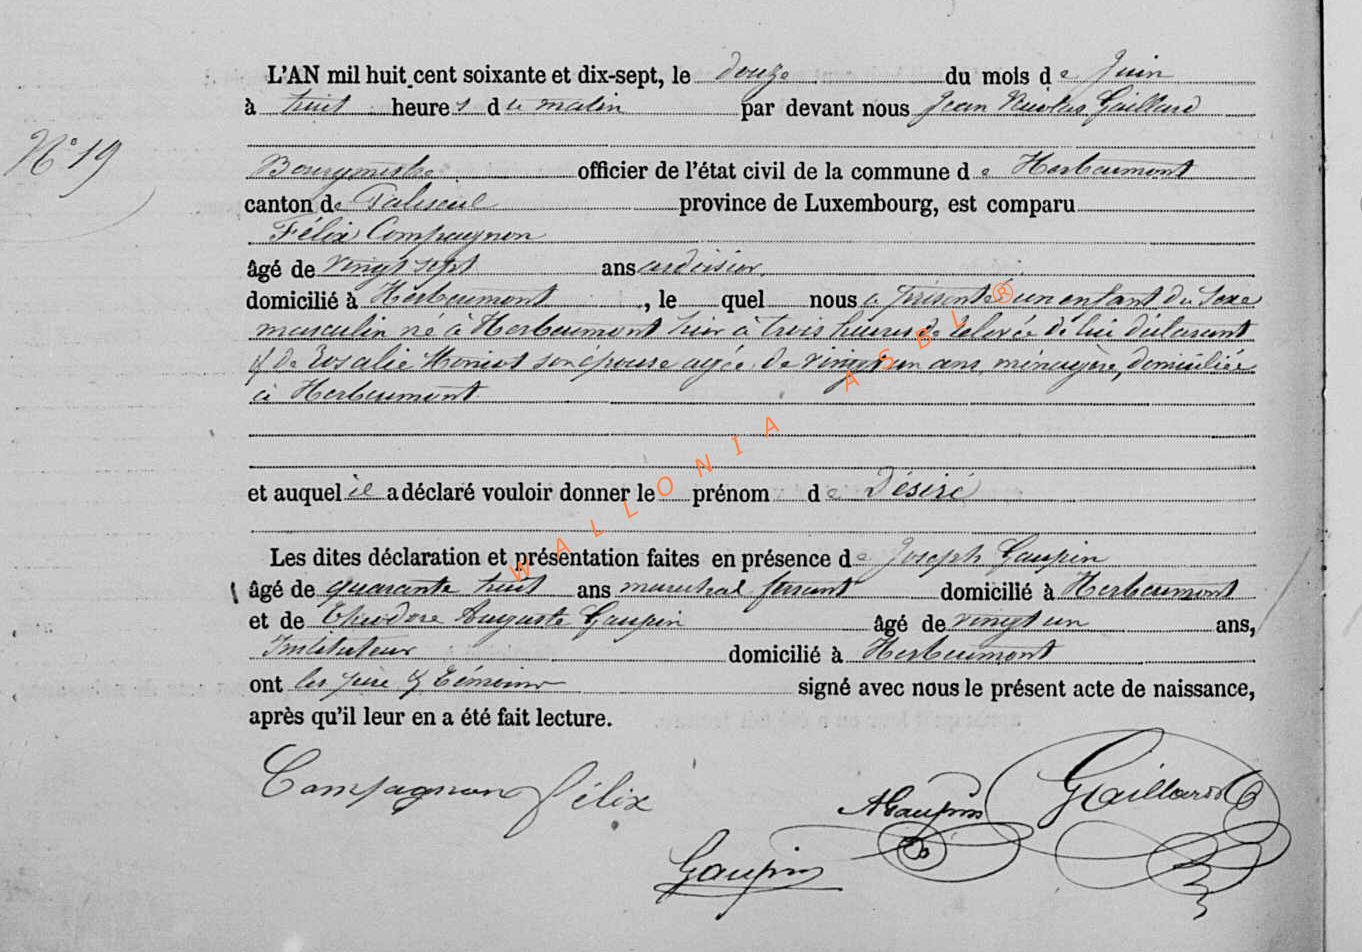 N° 19
L'AN mil huit cent soixante et dix-sept, le douze du mois de Juin
à huit heures du matin par devant nous Jean Nicolas Gaillard
Bourgmestre officier de l'état civil de la commune de Herbeumont
canton de Paliseul province de Luxembourg, est comparu
Félix Compagnon
âgé de vingt sept ans ardoisier,
domicilié à Herbeumont, le quel nous a présenté un enfant du sexe
masculin né à Herbeumont hier à trois heures de relevée de lui déclarant
& de Rosalie Moniot son épouse agée de vingt un ans, ménagère, domiciliée
à Herbeumont
et auquel il a déclaré vouloir donner le prénom de Désiré
Les dites déclaration et présentation faites en présence de Joseph Gaupin
âgé de quarante huit ans maréchal ferrant domicilié à Herbeumont
et de Théodore Auguste Gaupin âgé de vingt un ans,
Instituteur domicilié à Herbeumont
ont les père & témoins signé avec nous le présent acte de naissance,
après qu'il leur en a été fait lecture.
Compagnon Félix
AGaupin
Gaillard
Gaupin
WALLONIA ASBL ®